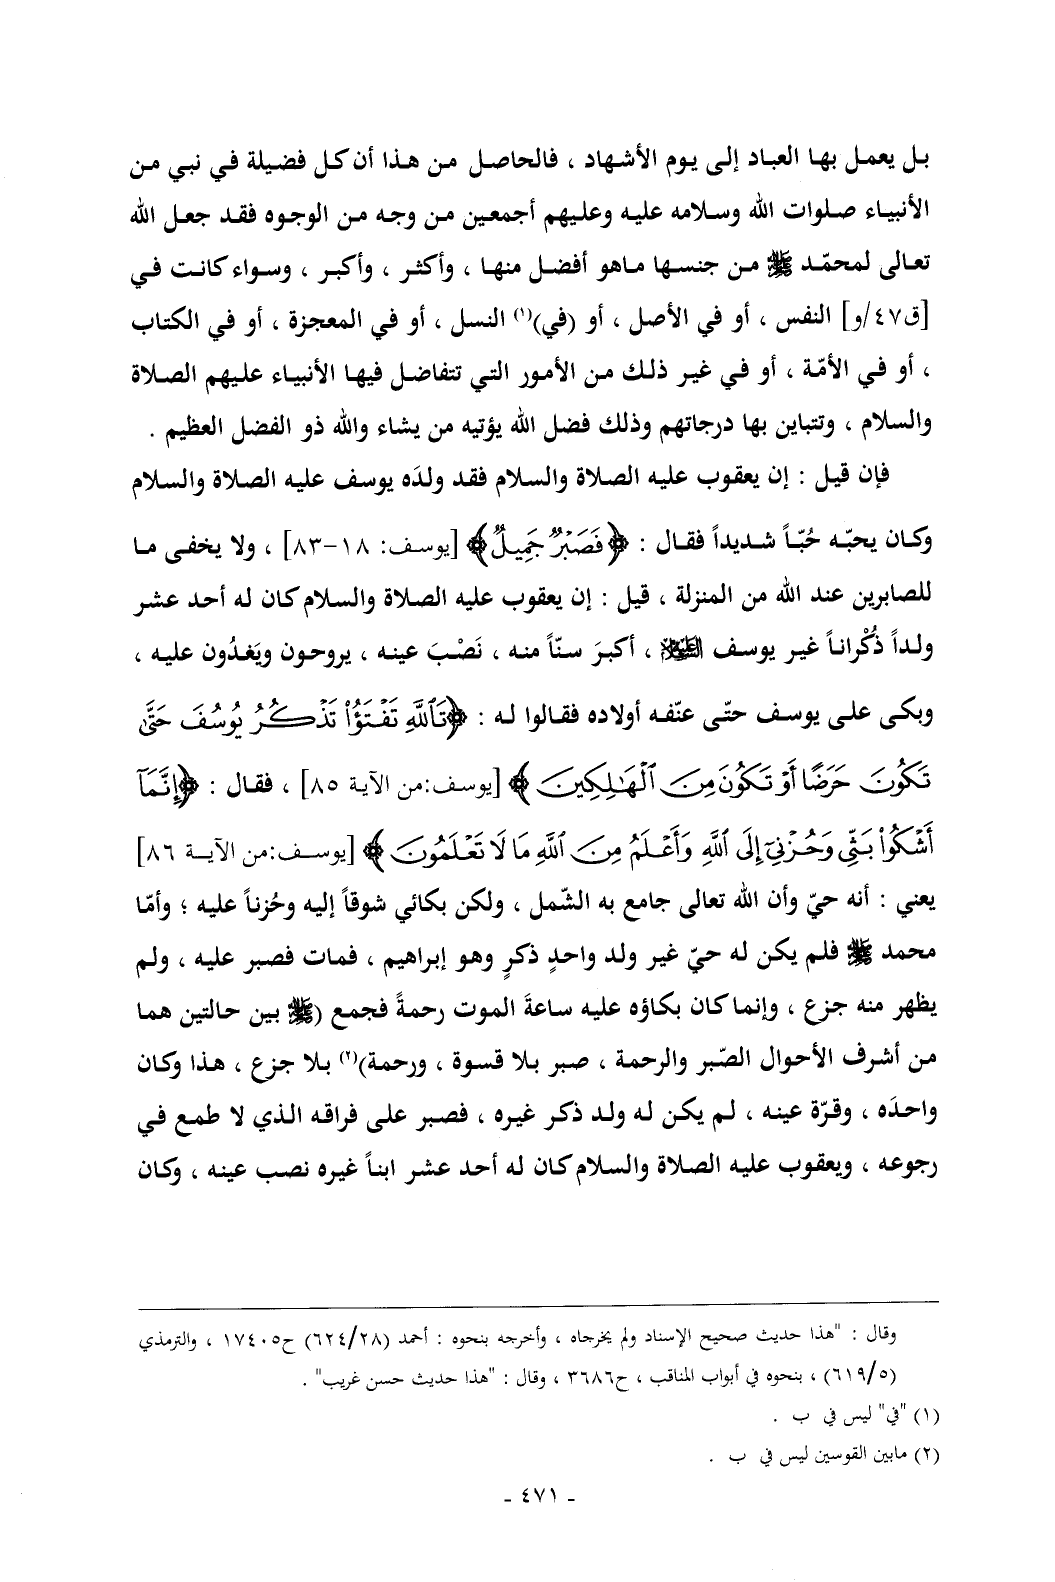 بل يعمل بها العباد إلى يوم الأشهاد ، فالحاصل من هذا أن كل فضيلة في نبي من
الأنبياء صلوات الله وسلامه عليه وعليهم أجمعين من وجه من الوجوه فقد جعل الله
تعالى لمحمّد ﷺ من جنسها ماهو أفضل منها ، وأكثر ، وأكبر ، وسواء كانت في
[ق٤٧/و] النفس ، أو في الأصل ، أو (في)(١) النسل ، أو في المعجزة ، أو في الكتاب
، أو في الأمّة ، أو في غير ذلك من الأمور التي تتفاضل فيها الأنبياء عليهم الصلاة
والسلام ، وتتباين بها درجاتهم وذلك فضل الله يؤتيه من يشاء والله ذو الفضل العظيم .
فإن قيل : إن يعقوب عليه الصلاة والسلام فقد ولدَه يوسف عليه الصلاة والسلام
وكان يحبّه حُبّاً شديداً فقال : ﴿فَصَبْرٌ جَمِيلٌ﴾ [يوسف: ١٨-٨٣] ، ولا يخفى ما
للصابرين عند الله من المنزلة ، قيل : إن يعقوب عليه الصلاة والسلام كان له أحد عشر
ولداً ذُكْراناً غير يوسف العَلَيْهِ السَّلَام ، أكبرَ سنّاً منه ، نَصْبَ عينه ، يروحون ويَغدُون عليه ،
وبكى على يوسف حتّى عنّفه أولاده فقالوا له : ﴿تَٱللَّهِ تَفْتَؤُا۟ تَذْكُرُ يُوسُفَ حَتَّىٰ
تَكُونَ حَرَضًا أَوْ تَكُونَ مِنَ ٱلْهَٰلِكِينَ﴾ [يوسف:من الآية ٨٥] ، فقال : ﴿إِنَّمَآ
أَشْكُوا۟ بَثِّى وَحُزْنِىٓ إِلَى ٱللَّهِ وَأَعْلَمُ مِنَ ٱللَّهِ مَا لَا تَعْلَمُونَ﴾ [يوسف:من الآية ٨٦]
يعني : أنه حيّ وأن الله تعالى جامع به الشّمل ، ولكن بكائي شوقاً إليه وحُزناً عليه ؛ وأمّا
محمد ﷺ فلم يكن له حيّ غير ولد واحدٍ ذكرٍ وهو إبراهيم ، فمات فصبر عليه ، ولم
يظهر منه جزع ، وإنما كان بكاؤه عليه ساعةَ الموت رحمةً فجمع (ﷺ بين حالتين هما
من أشرف الأحوال الصّبر والرحمة ، صبر بلا قسوة ، ورحمة)(٢) بلا جزع ، هذا وكان
واحدَه ، وقرّة عينه ، لم يكن له ولد ذكر غيره ، فصبر على فراقه الذي لا طمع في
رجوعه ، ويعقوب عليه الصلاة والسلام كان له أحد عشر ابناً غيره نصب عينه ، وكان
وقال : "هذا حديث صحيح الإسناد ولم يخرجاه ، وأخرجه بنحوه : أحمد (٦٢٤/٢٨) ح١٧٤٠٥ ، والترمذي
(٦١٩/٥) ، بنحوه في أبواب المناقب ، ح٣٦٨٦ ، وقال : "هذا حديث حسن غريب" .
(١) "في" ليس في ب .
(٢) مابين القوسين ليس في ب .
- ٤٧١ -